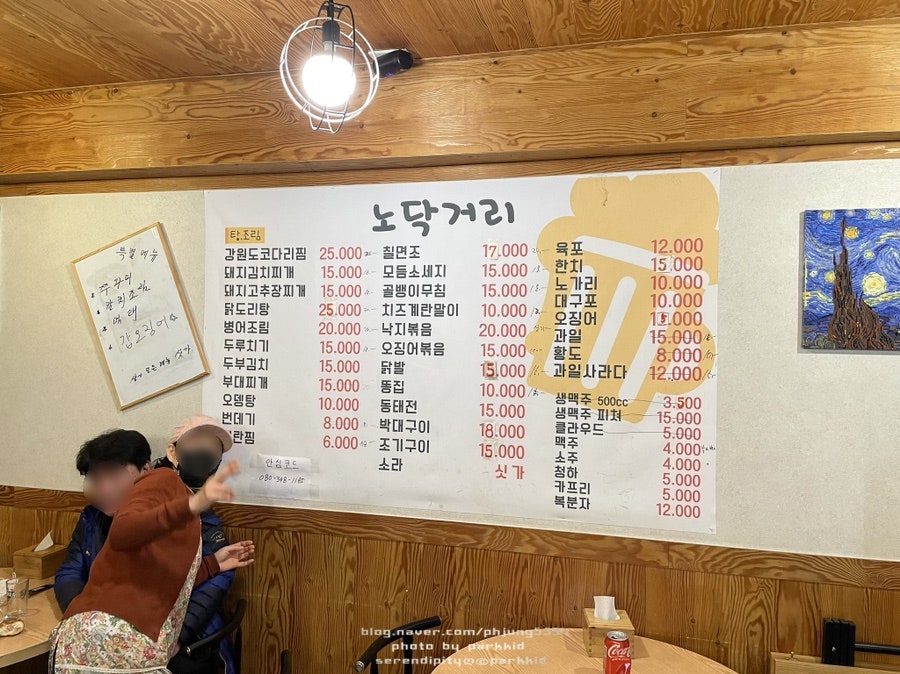 노닥거리
탕.조림
강원도코다리찜 25.000
돼지김치찌개 15.000
돼지고추장찌개 15.000
닭도리탕 25.000
병어조림 20.000
두루치기 15.000
두부김치 15.000
부대찌개 15.000
오뎅탕 10.000
번데기 8.000
란찜 6.000
칠면조 17.000
모듬소세지 15.000
골뱅이무침 15.000
치즈계란말이 10.000
낙지볶음 20.000
오징어볶음 15.000
닭발 15.000
똥집 10.000
동태전 15.000
박대구이 18.000
조기구이 15.000
소라 싯가
육포 12.000
한치 15.000
노가리 10.000
대구포 10.000
오징어
과일 15.000
황도 8.000
과일사라다 12.000
생맥주 500cc 3.500
생맥주 피쳐 15.000
클라우드 5.000
맥주 4.000
소주 4.000
청하 5.000
카프리 5.000
복분자 12.000
특별메뉴
쭈꾸미
갈치조림
먹태
갑오징어
안심코드
blog.naver.com/phjung
photo by parkkid
serendipity@@parkkid